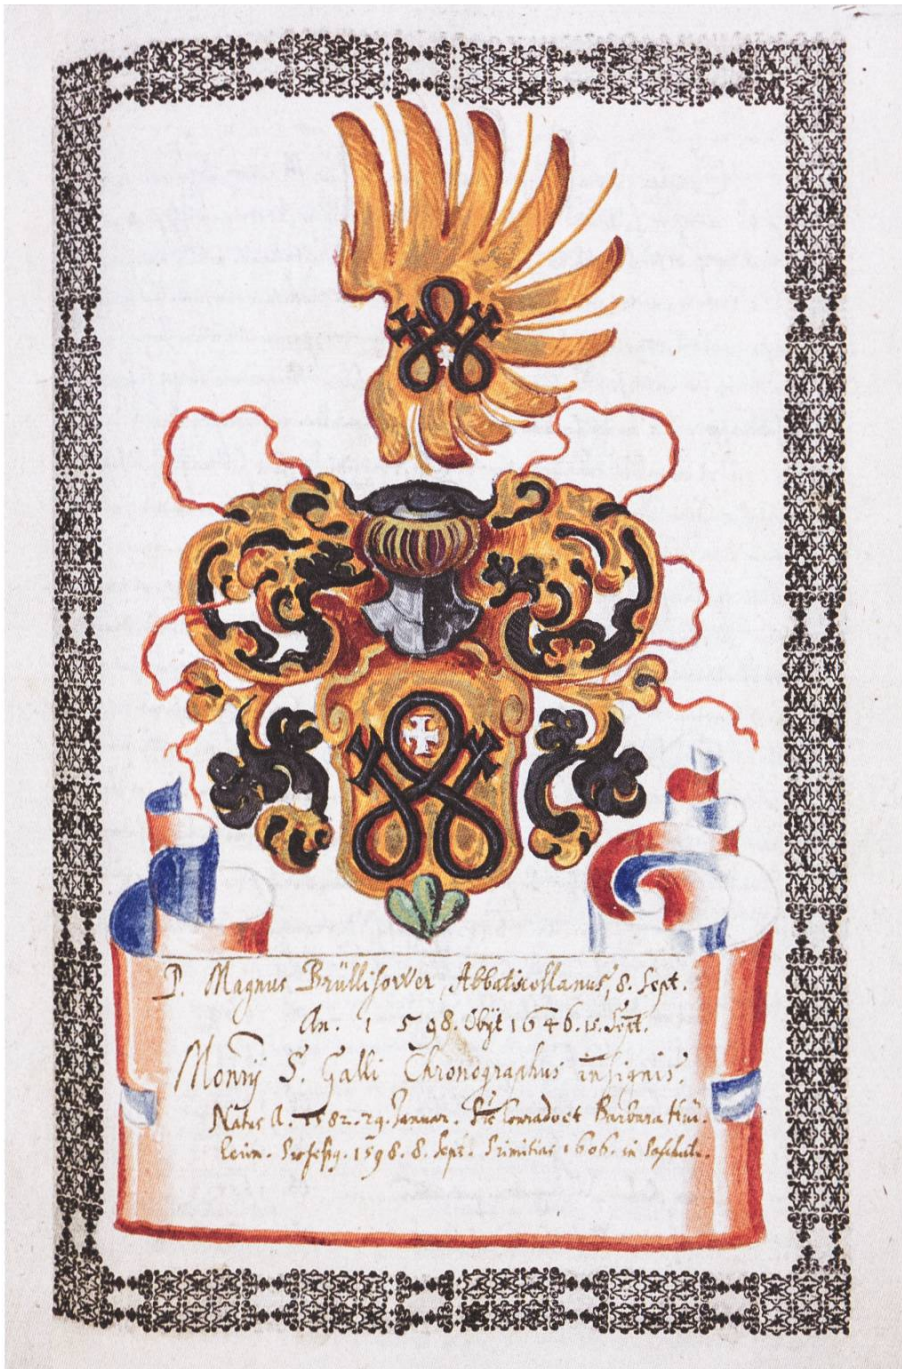 P. Magnus Brüllisower, Abbatiscellanus, 8. Sept.
An. 1598. Obÿt 1646. 15. Sept.
Monrÿ S. Galli Chronographus insignis.
Natus A. 1582. 29. Januar. Conrado et Barbara
1598. 8. Sept. Primitias 1606. in